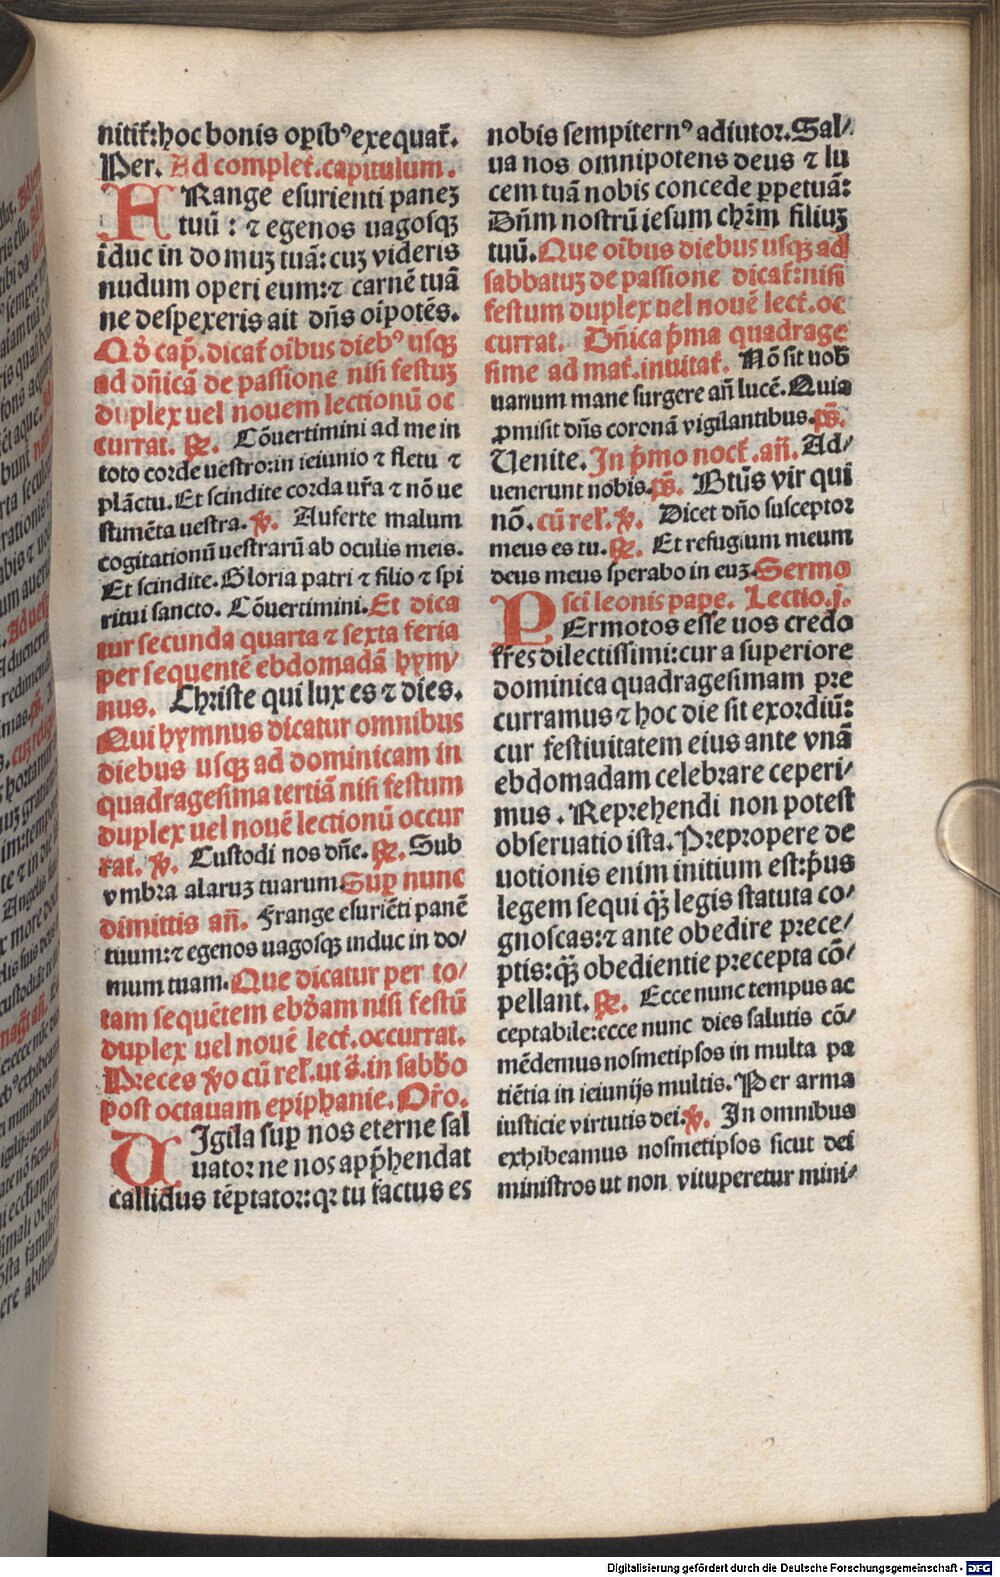 nitit̄:hoc bonis oꝑibꝰ exequat̄.
Per. Ad complet̄.capitulum.
FRange esurienti paneʒ
tuū : ⁊ egenos uagosqʒ
īduc in do muʒ tuā: cuʒ videris
nudum operi eum:⁊ carnē tuā
ne despexeris ait dn̄s oīpotēs.
Qd̄ cap̄.dicat̄ oībus diebꝰ usqʒ
ad dn̄icā de passione nisi festuʒ
duplex uel nouem lectionū oc
currat. ℞. Cōuertimini ad me in
toto corde uestro:in ieiunio ⁊ fletu ⁊
plāctu.Et scindite corda ur̄a ⁊ nō ue
stimēta uestra. ℣. Auferte malum
cogitationū uestrarū ab oculis meis.
Et scindite.Gloria patri ⁊ filio ⁊ spi
ritui sancto. Cōuertimini.Et dica
tur secunda quarta ⁊ sexta feria
per sequentē ebdomadā hym/
nus. Christe qui lux es ⁊ dies.
Qui hymnus dicatur omnibus
diebus usqʒ ad dominicam in
quadragesima tertiā nisi festum
duplex uel nouē lectionū occur
rat. ℣. Custodi nos dn̄e. ℞. Sub
vmbra alaruʒ tuarum.Suꝑ nunc
dimittis an̄. Frange esuriēti panē
tuum:⁊ egenos uagosqʒ induc in do/
mum tuam.Que dicatur per to/
tam sequētem ebd̄am nisi festū
duplex uel nouē lect̄.occurrat.
Preces v̊o cū rel̄.ut s̄.in sabb̄o
post octauam epiphanie. Or̄o.
UIgila suꝑ nos eterne sal
uator ne nos app̄hendat
callidus tēptator:qꝛ tu factus es
nobis sempiternꝰ adiutor.Sal/
ua nos omnipotens deus ⁊ lu
cem tuā nobis concede ꝑpetuā:
Dn̄m nostrū iesum chr̄m filiuʒ
tuū.Que oībus diebus usqʒ ad
sabbatuʒ de passione dicat̄:nisi
festum duplex uel nouē lect̄.oc
currat. Dn̄ica p̄ma quadrage
sime ad mat̄.inuitat̄. Nō sit uob̄
uanum mane surgere an̄ lucē.Quia
ꝓmisit dn̄s coronā vigilantibus.ps̄.
Uenite.In p̄mo noct̄.an̄. Ad/
uenerunt nobis.ps̄. Bt̄us vir qui
nō.cū rel̄.℣. Dicet dn̄o susceptor
meus es tu.℞. Et refugium meum
deus meus sperabo in euʒ.Sermo
sc̄i leonis pape. Lectio.j.
PErmotos esse uos credo
fr̄es dilectissimi:cur a superiore
dominica quadragesimam pre
curramus ⁊ hoc die sit exordiū:
cur festiuitatem eius ante vnā
ebdomadam celebrare ceperi/
mus . Reprehendi non potest
obseruatio ista.Prepropere de
uotionis enim initium est:p̄us
legem sequi qʒ̄ legis statuta co-
gnoscas:⁊ ante obedire prece/
ptis:qʒ̄ obedientie precepta cō/
pellant.℞. Ecce nunc tempus ac
ceptabile:ecce nunc dies salutis cō/
mēdemus nosmetipsos in multa pa
tiētia in ieiunijs multis.Per arma
iusticie virtutis dei.℣. In omnibus
exhibeamus nosmetipsos sicut dei
ministros ut non vituperetur mini/
Digitalisierung gefördert durch die Deutsche Forschungsgemeinschaft - DFG